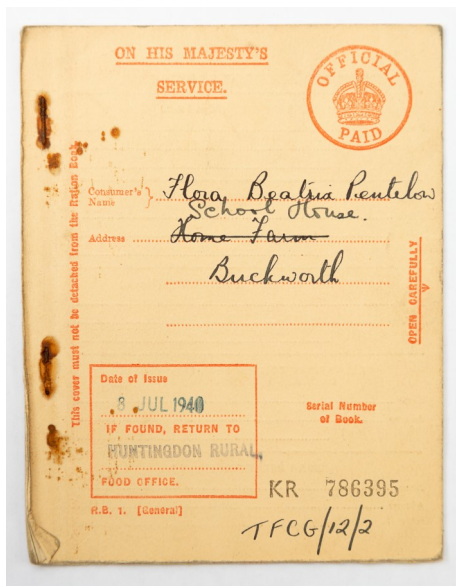 ON HIS MAJESTY'S
SERVICE.
OFFICIAL
PAID
This cover must not be detached from the Ration Book.
Consumer's Name } Flora Beatrix Pentelow
School House.
Address Home Farm
Buckworth
OPEN CAREFULLY
Date of Issue
8 JUL 1940
IF FOUND, RETURN TO
HUNTINGDON RURAL.
FOOD OFFICE.
Serial Number
of Book.
KR 786395
R.B. 1. [General]
TFCG/12/2